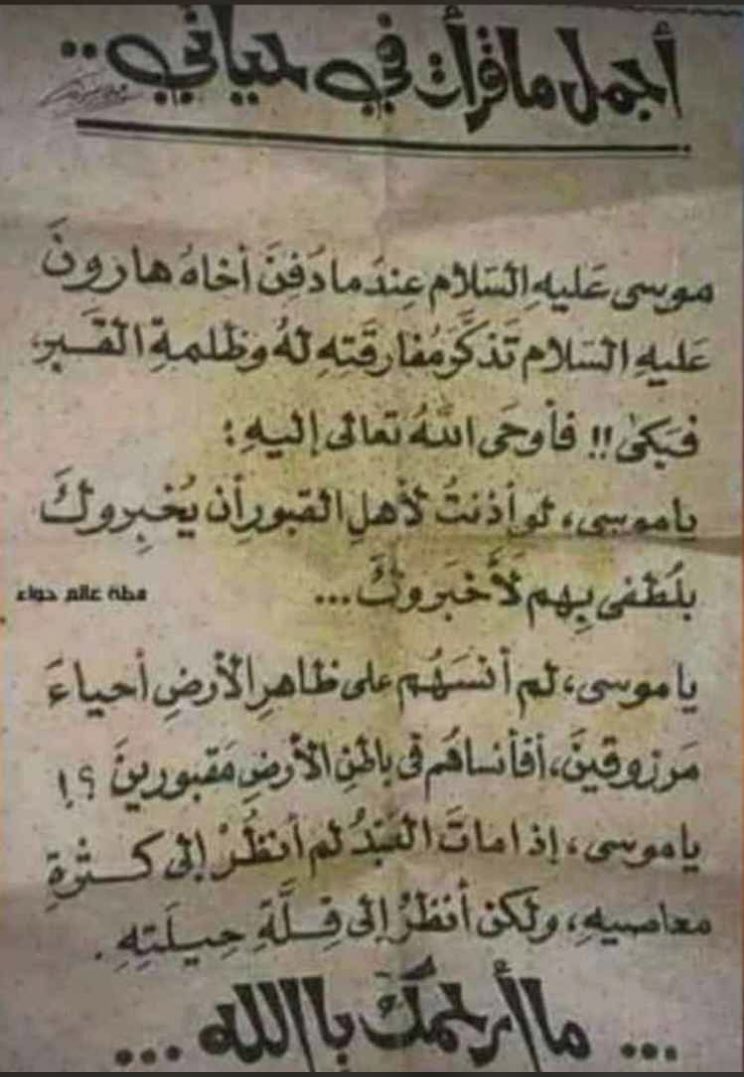 أجمل ما قرأت في حياتي..
موسى عَليهِ السَلام عِندَما دَفِنَ أخاهُ هارونَ
عَليهِ السَلام تَذكَّرَ مُفارقَتِهِ لهُ وظلمةِ القَــبرِ،
فبَكىٰ !! فأوحَى اللهُ تعالى إليهِ :
يا موسى، لو أذنتُ لأهلِ القبور أن يُخبِروكَ
بلُطفى بِهم لَأخبَروكَ...
محلة عالم حواء
يا موسى، لم أنسَهُم على ظاهرِ الأرضِ أحياءَ
مَرزوقينَ، أفأنساهُم في باطنِ الأرضِ مَقبورينَ ؟!
يا موسى، إذا ماتَ العَبْدُ لم أنظُرْ إلى كــثرةِ
معاصيهِ، ولكن أنظرُ إلى قِــلَّةِ حِيلَتِهِ .
... ما أرحمكَ يا الله ...